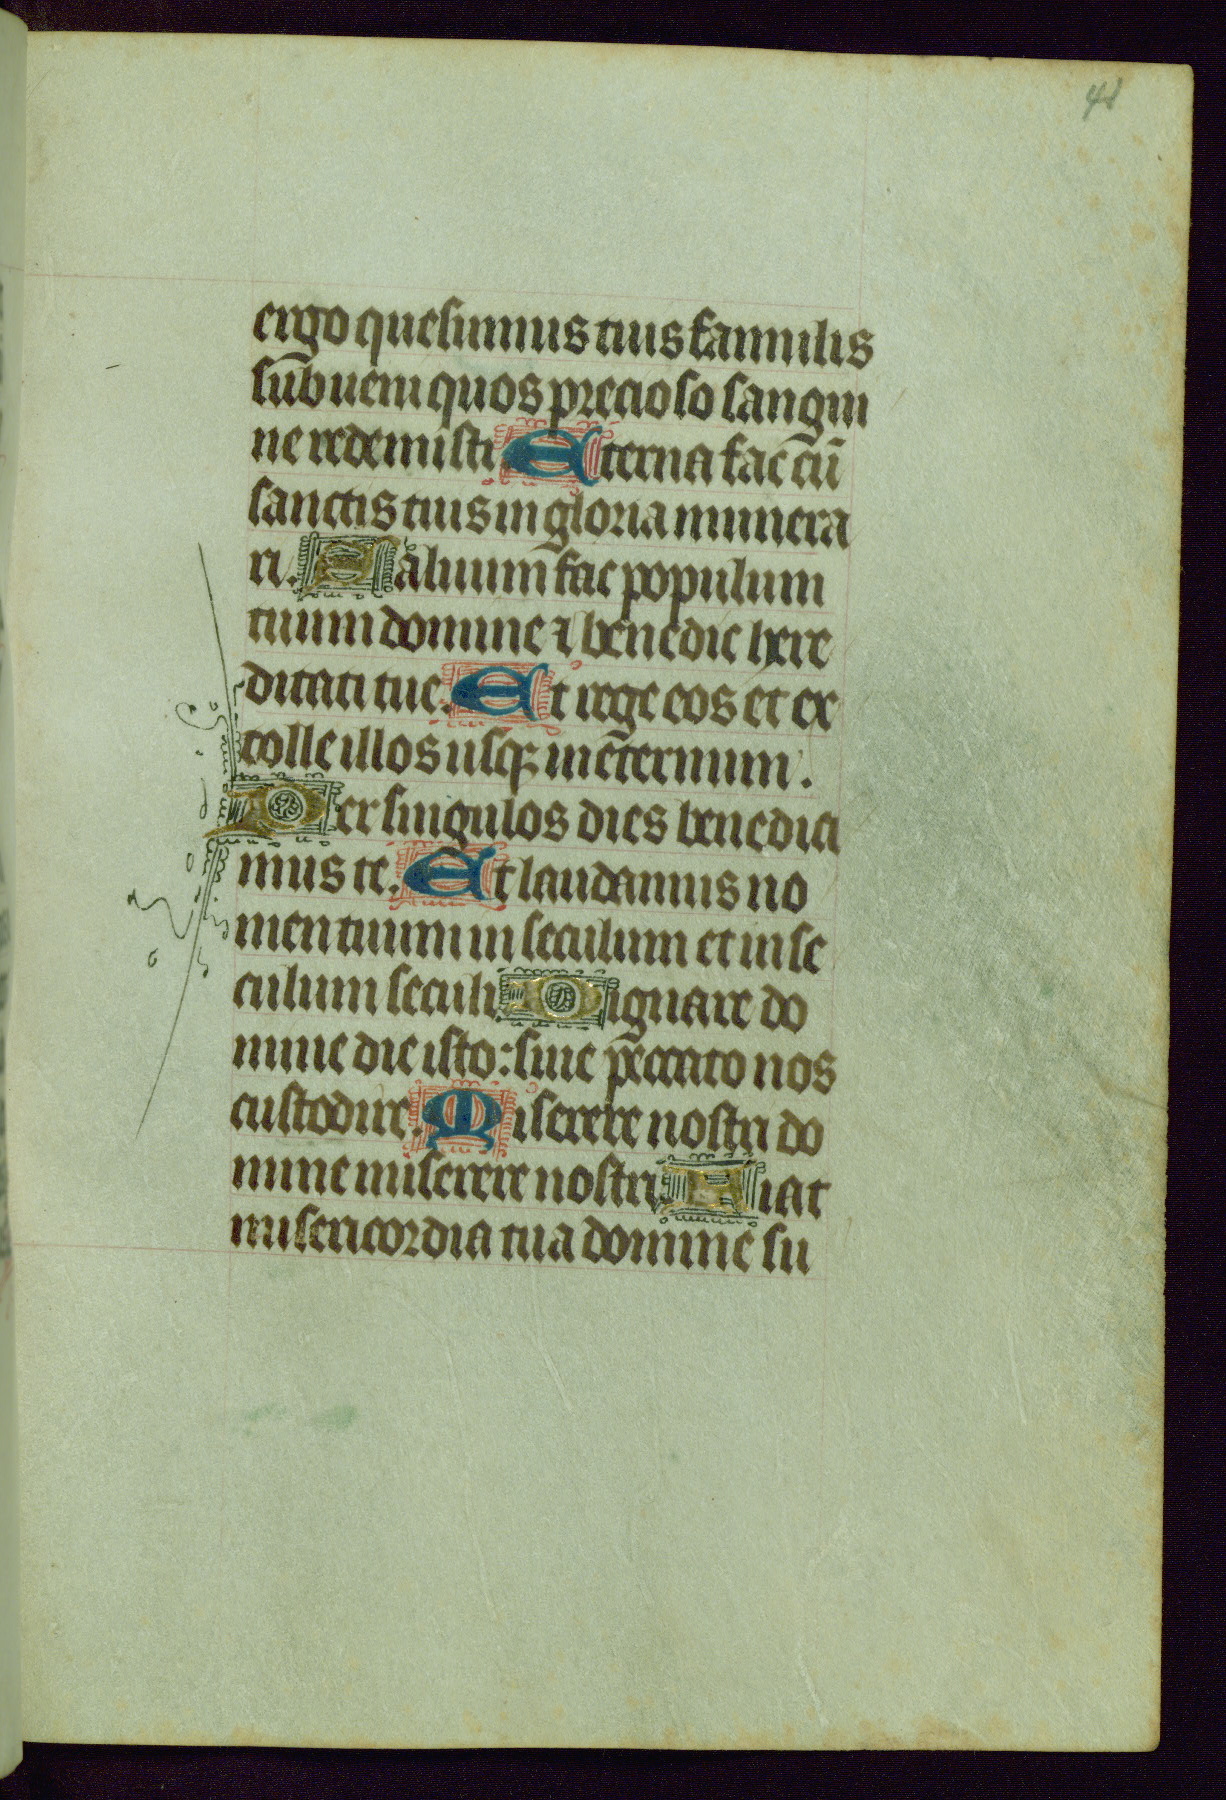 41
ergo quesumus tuis famulis
sūbueni quos precioso sangui
ne redemisti Eterna fac cū
sanctis tuis in gloria munera
ri. Saluum fac populum
tuum domine ⁊ benedic here
ditati tue. Et rege eos et ex
tolle illos usqꝫ in eternum.
Per singulos dies benedici
mus te. Et laudamus no
men tuum in seculum et in se
culum seculi Dignare do
mine die isto: sine peccato nos
custodire. Miserere nostri do
mine miserere nostri Fiat
misericordia tua domine su